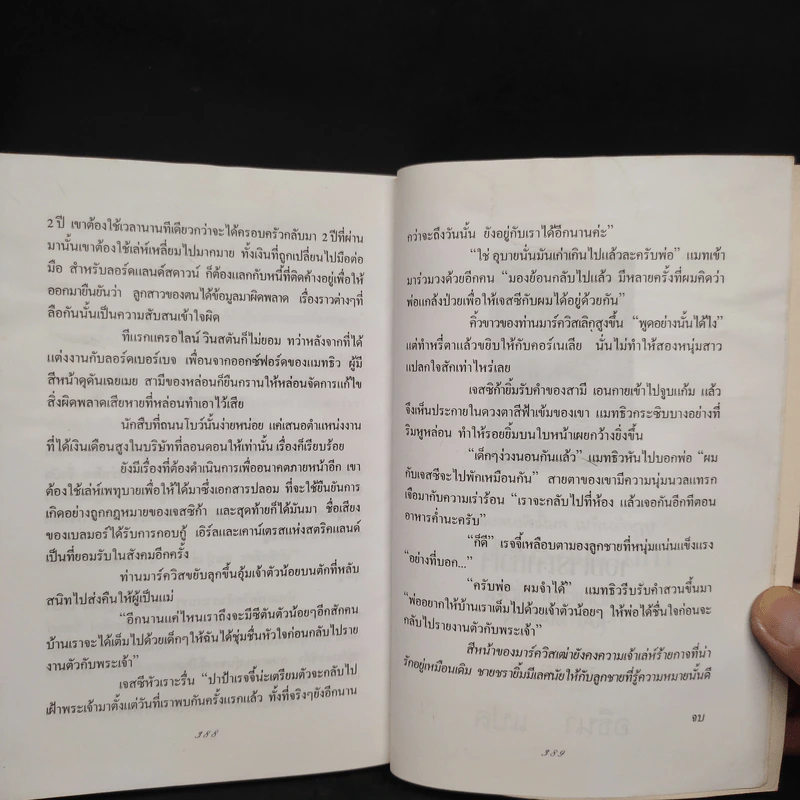 2 ปี เขาต้องใช้เวลานานทีเดียวกว่าจะได้ครอบครัวกลับมา 2 ปีที่ผ่าน
มานั้นเขาต้องใช้เล่ห์เหลี่ยมไปมากมาย ทั้งเงินที่ถูกเปลี่ยนไปมือต่อ
มือ สำหรับลอร์ดแลนด์สดาวน์ ก็ต้องแลกกับหนี้ที่ติดค้างอยู่เพื่อให้
ออกมายืนยันว่า ลูกสาวของตนได้ข้อมูลมาผิดพลาด เรื่องราวต่างๆที่
ลือกันนั้นเป็นความสับสนเข้าใจผิด
ทีแรกแครอไลน์ วินสตันก็ไม่ยอม ทว่าหลังจากที่ได้
แต่งงานกับลอร์ดเบอร์เบจ เพื่อนจากออกซ์ฟอร์ดของแมทธิว ผู้มี
สีหน้าดุดันเฉยเมย สามีของหล่อนก็ยืนกรานให้หล่อนจัดการแก้ไข
สิ่งผิดพลาดเสียหายที่หล่อนทำเอาไว้เสีย
นักสืบที่ถนนโบว์นั้นง่ายหน่อย แค่เสนอตำแหน่งงาน
ที่ได้เงินเดือนสูงในบริษัทที่ลอนดอนให้เท่านั้น เรื่องก็เรียบร้อย
ยังมีเรื่องที่ต้องดำเนินการเพื่ออนาคตภายหน้าอีก เขา
ต้องใช้เล่ห์เพทุบายเพื่อให้ได้มาซึ่งเอกสารปลอม ที่จะใช้ยืนยันการ
เกิดอย่างถูกกฎหมายของเจสซิก้า และสุดท้ายก็ได้มันมา ชื่อเสียง
ของเบลมอร์ได้รับการกอบกู้ เอิร์ลและเคาน์เตรสแห่งสตริคแลนด์
เป็นที่ยอมรับในสังคมอีกครั้ง
ท่านมาร์ควิสขยับลุกขึ้นอุ้มเจ้าตัวน้อยบนตักที่หลับ
สนิทไปส่งคืนให้ผู้เป็นแม่
“อีกนานแค่ไหนเราถึงจะมีซีตันตัวน้อยๆอีกสักคน
บ้านเราจะได้เต็มไปด้วยเด็กๆให้ฉันได้ชุ่มชื่นหัวใจก่อนกลับไปราย
งานตัวกับพระเจ้า”
เจสซีหัวเราะรื่น “ปาป้าเรจจี้น่ะเตรียมตัวจะกลับไป
เฝ้าพระเจ้ามาตั้งแต่วันที่เราพบกันครั้งแรกแล้ว ทั้งที่จริงๆยังอีกนาน
388
กว่าจะถึงวันนั้น ยังอยู่กับเราได้อีกนานค่ะ”
“ใช่ อุบายนั่นมันเก่าเกินไปแล้วละครับพ่อ” แมทเข้า
มาร่วมวงด้วยอีกคน “มองย้อนกลับไปแล้ว มีหลายครั้งที่ผมคิดว่า
พ่อแกล้งป่วยเพื่อให้เจสซีกับผมได้อยู่ด้วยกัน”
คิ้วขาวของท่านมาร์ควิสเลิกสูงขึ้น “พูดอย่างนั้นได้ไง”
แต่ทำหรี่ตาแล้วขยิบให้กับคอร์เนเลีย นั่นไม่ทำให้สองหนุ่มสาว
แปลกใจสักเท่าไหร่เลย
เจสซิก้ายิ้มรับคำของสามี เอนกายเข้าไปจูบแก้ม แล้ว
จึงเห็นประกายในดวงตาสีฟ้าเข้มของเขา แมทธิวกระซิบบางอย่างที่
ริมหูหล่อน ทำให้รอยยิ้มบนใบหน้าเผยกว้างยิ่งขึ้น
“เด็กๆง่วงนอนกันแล้ว” แมทธิวหันไปบอกพ่อ “ผม
กับเจสซีจะไปพักเหมือนกัน” สายตาของเขามีความนุ่มนวลแทรก
เจือมากับความเร่าร้อน “เราจะกลับไปที่ห้อง แล้วเจอกันอีกทีตอน
อาหารค่ำนะครับ”
“ก็ดี” เรจจี้เหลือบตามองลูกชายที่หนุ่มแน่นแข็งแรง
“อย่างที่บอก...”
“ครับพ่อ ผมจำได้” แมทธิวรีบรับคำสวนขึ้นมา
“พ่ออยากให้บ้านเราเต็มไปด้วยเจ้าตัวน้อยๆ ให้พ่อได้ชื่นใจก่อนจะ
กลับไปรายงานตัวกับพระเจ้า”
สีหน้าของมาร์ควิสเฒ่ายังคงความเจ้าเล่ห์ร้ายกาจที่น่า
รักอยู่เหมือนเดิม ชายชรายิ้มมีเลศนัยให้กับลูกชายที่รู้ความหมายนั้นดี
จบ
389